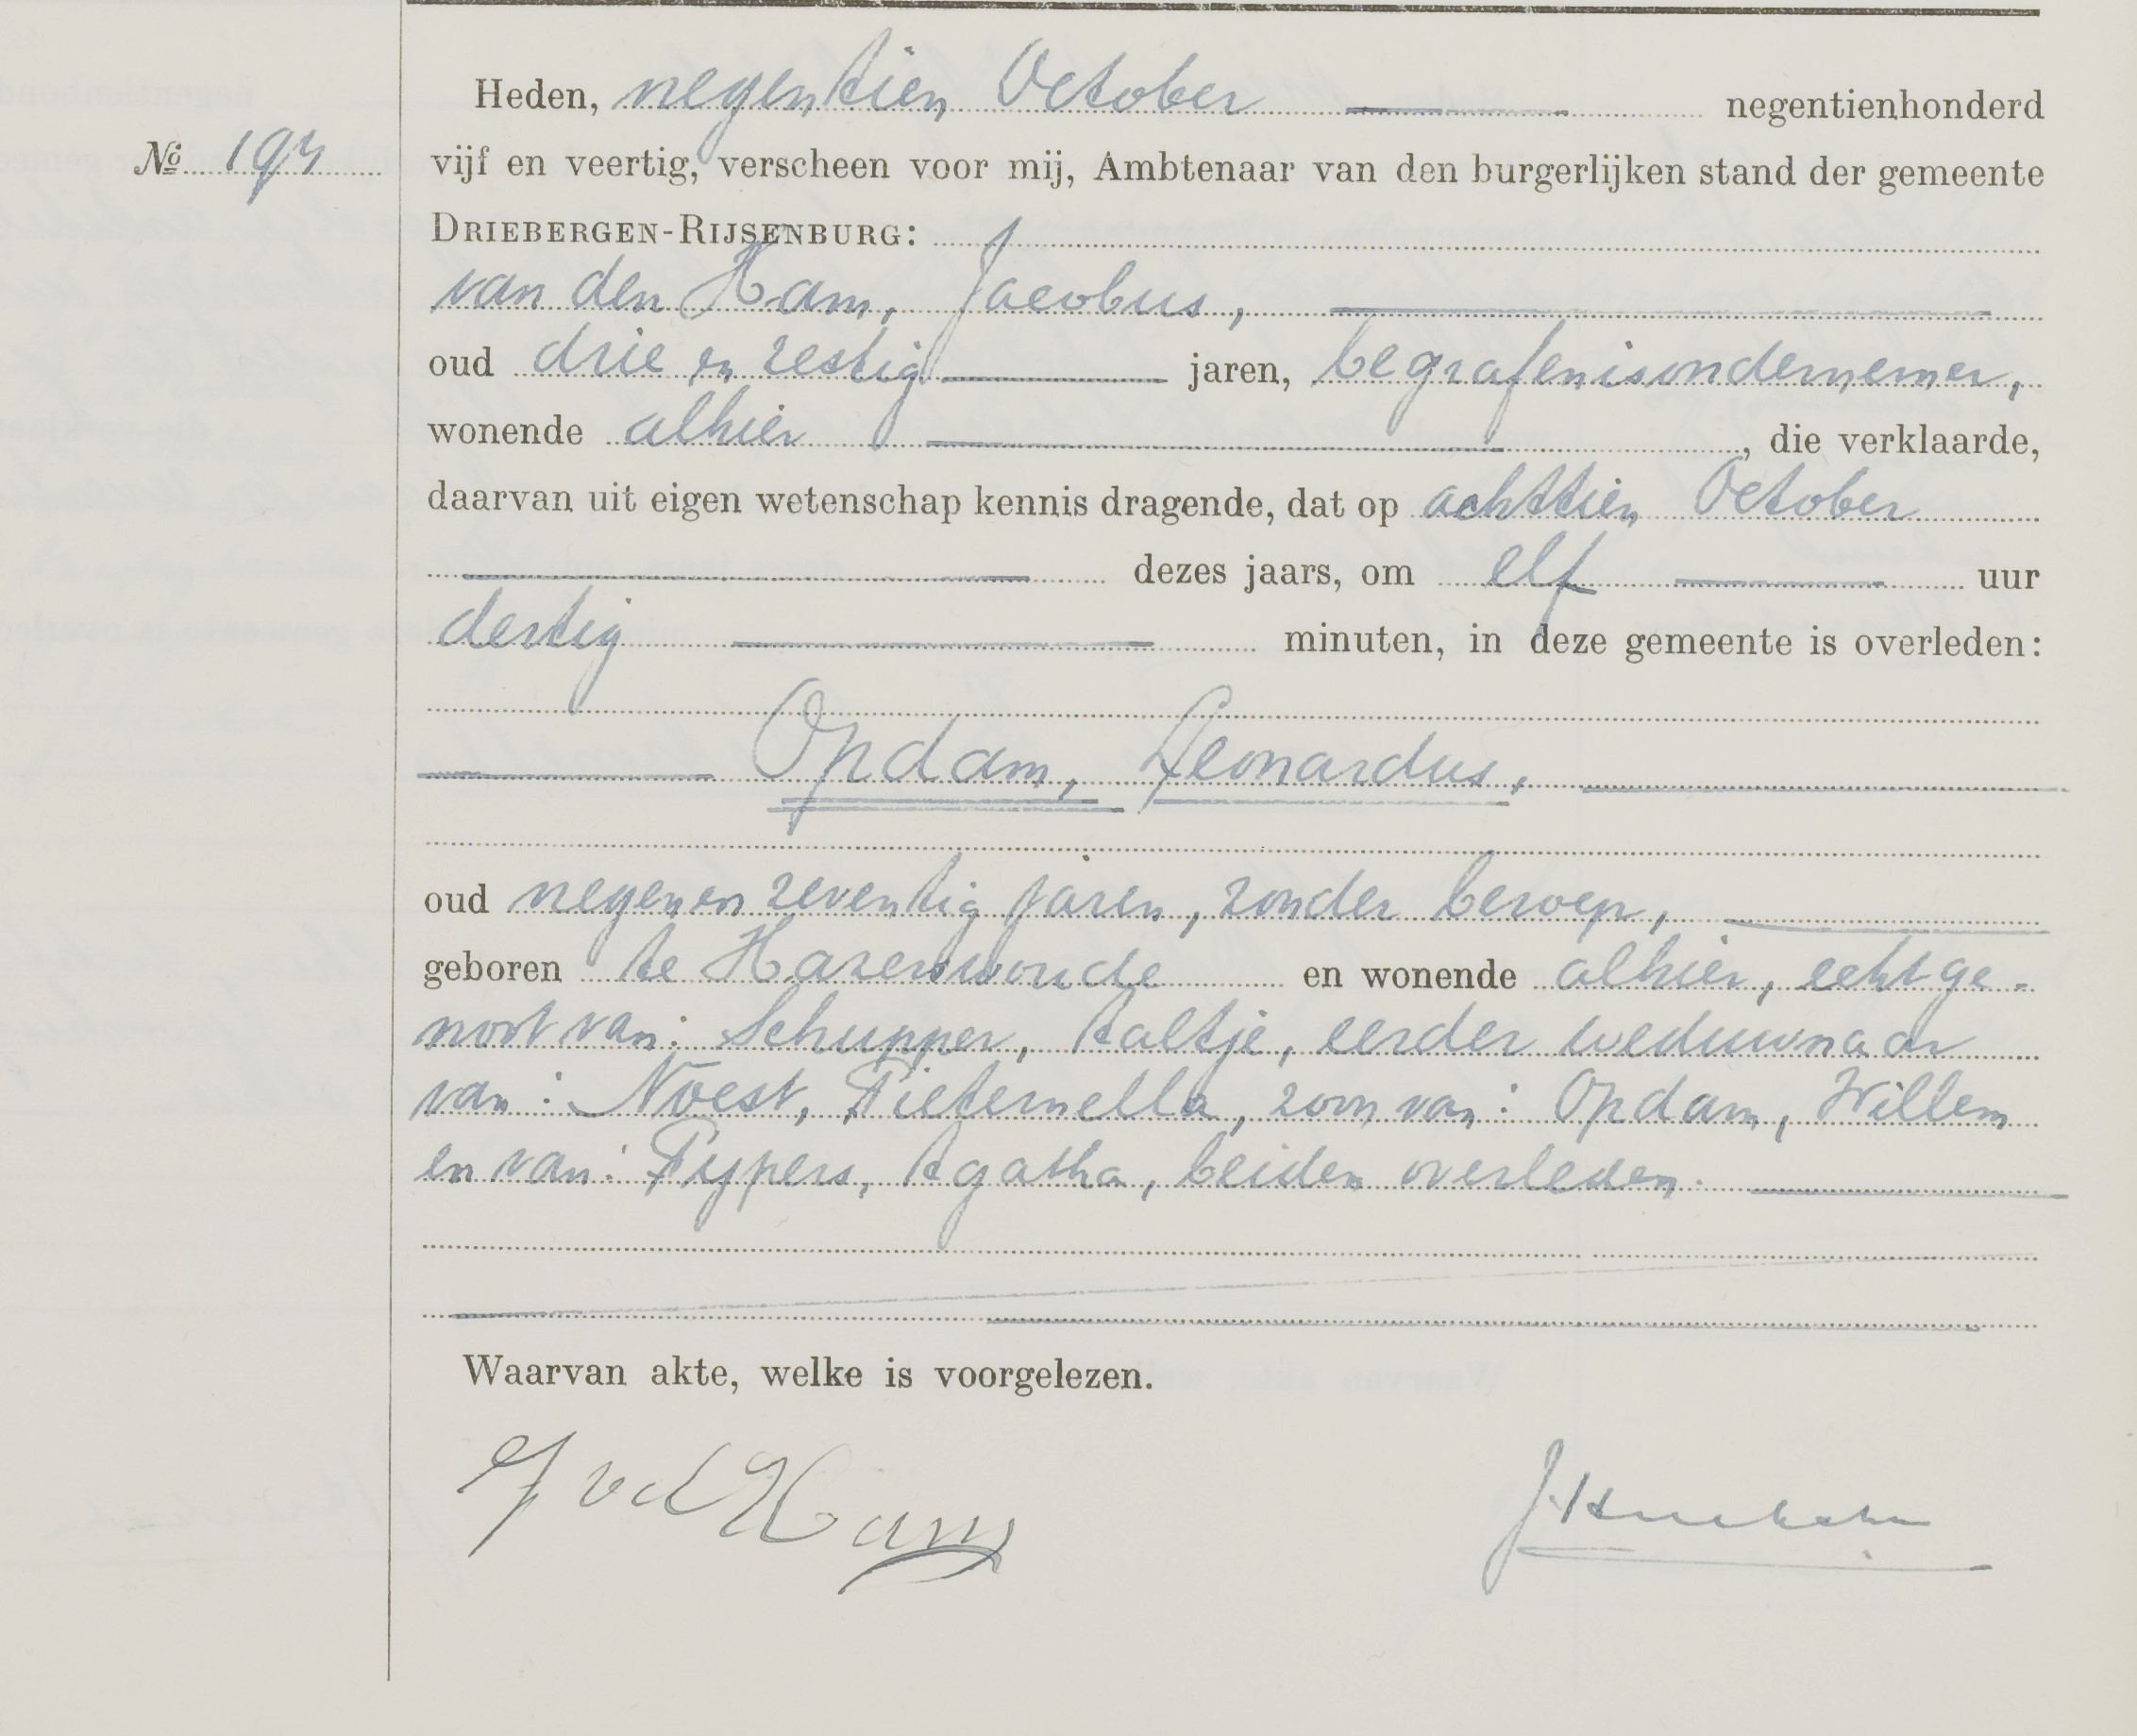 Heden, negentien October negentienhonderd
No 193
vijf en veertig, verscheen voor mij, Ambtenaar van den burgerlijken stand der gemeente
DRIEBERGEN-RIJSENBURG:
van den Ham, Jacobus,
oud drie en zestig jaren, begrafenisondernemer,
wonende alhier , die verklaarde,
daarvan uit eigen wetenschap kennis dragende, dat op achttien October
dezes jaars, om elf uur
dertig minuten, in deze gemeente is overleden:
Opdam, Leonardus,
oud negen en zeventig jaren, zonder beroep,
geboren te Hazerswoude en wonende alhier, echtge-
noot van: Schupper, Aaltje, eerder weduwnaar
van: Noest, Pieternella, zoon van: Opdam, Willem
en van: Pijpers, Agatha, beiden overleden.
Waarvan akte, welke is voorgelezen.
J vd Ham